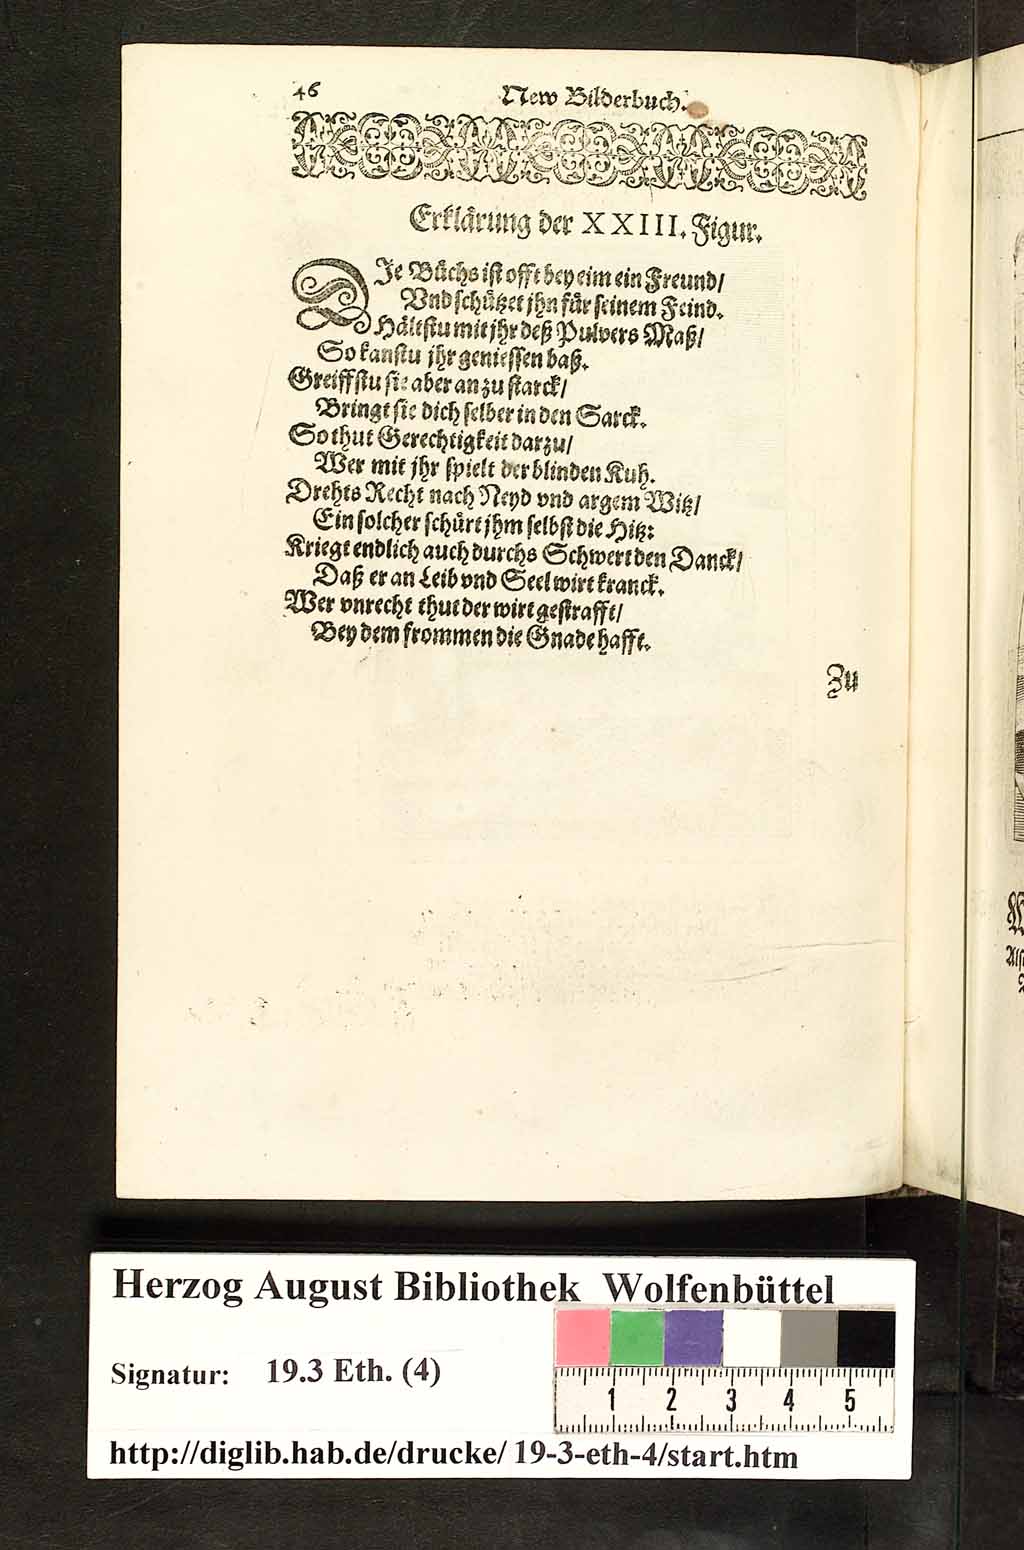 46
New Bilderbuch.
Erklärung der XXIII. Figur.
DJe Büchs ist offt bey eim ein Freund/
Vnd schützet jhn für seinem Feind.
Hältstu mit jhr deß Pulvers Maß/
So kanstu jhr geniessen baß.
Greiffstu sie aber an zu starck/
Bringt sie dich selber in den Sarck.
So thut Gerechtigkeit darzu/
Wer mit jhr spielt der blinden Kuh.
Drehts Recht nach Neyd vnd argem Witz/
Ein solcher schürt jhm selbst die Hitz:
Kriegt endlich auch durchs Schwert den Danck/
Daß er an Leib vnd Seel wirt kranck.
Wer vnrecht thut der wirt gestrafft/
Bey dem frommen die Gnade hafft.
Zu
Herzog August Bibliothek Wolfenbüttel
Signatur: 19.3 Eth. (4)
1 2 3 4 5
http://diglib.hab.de/drucke/19-3-eth-4/start.htm